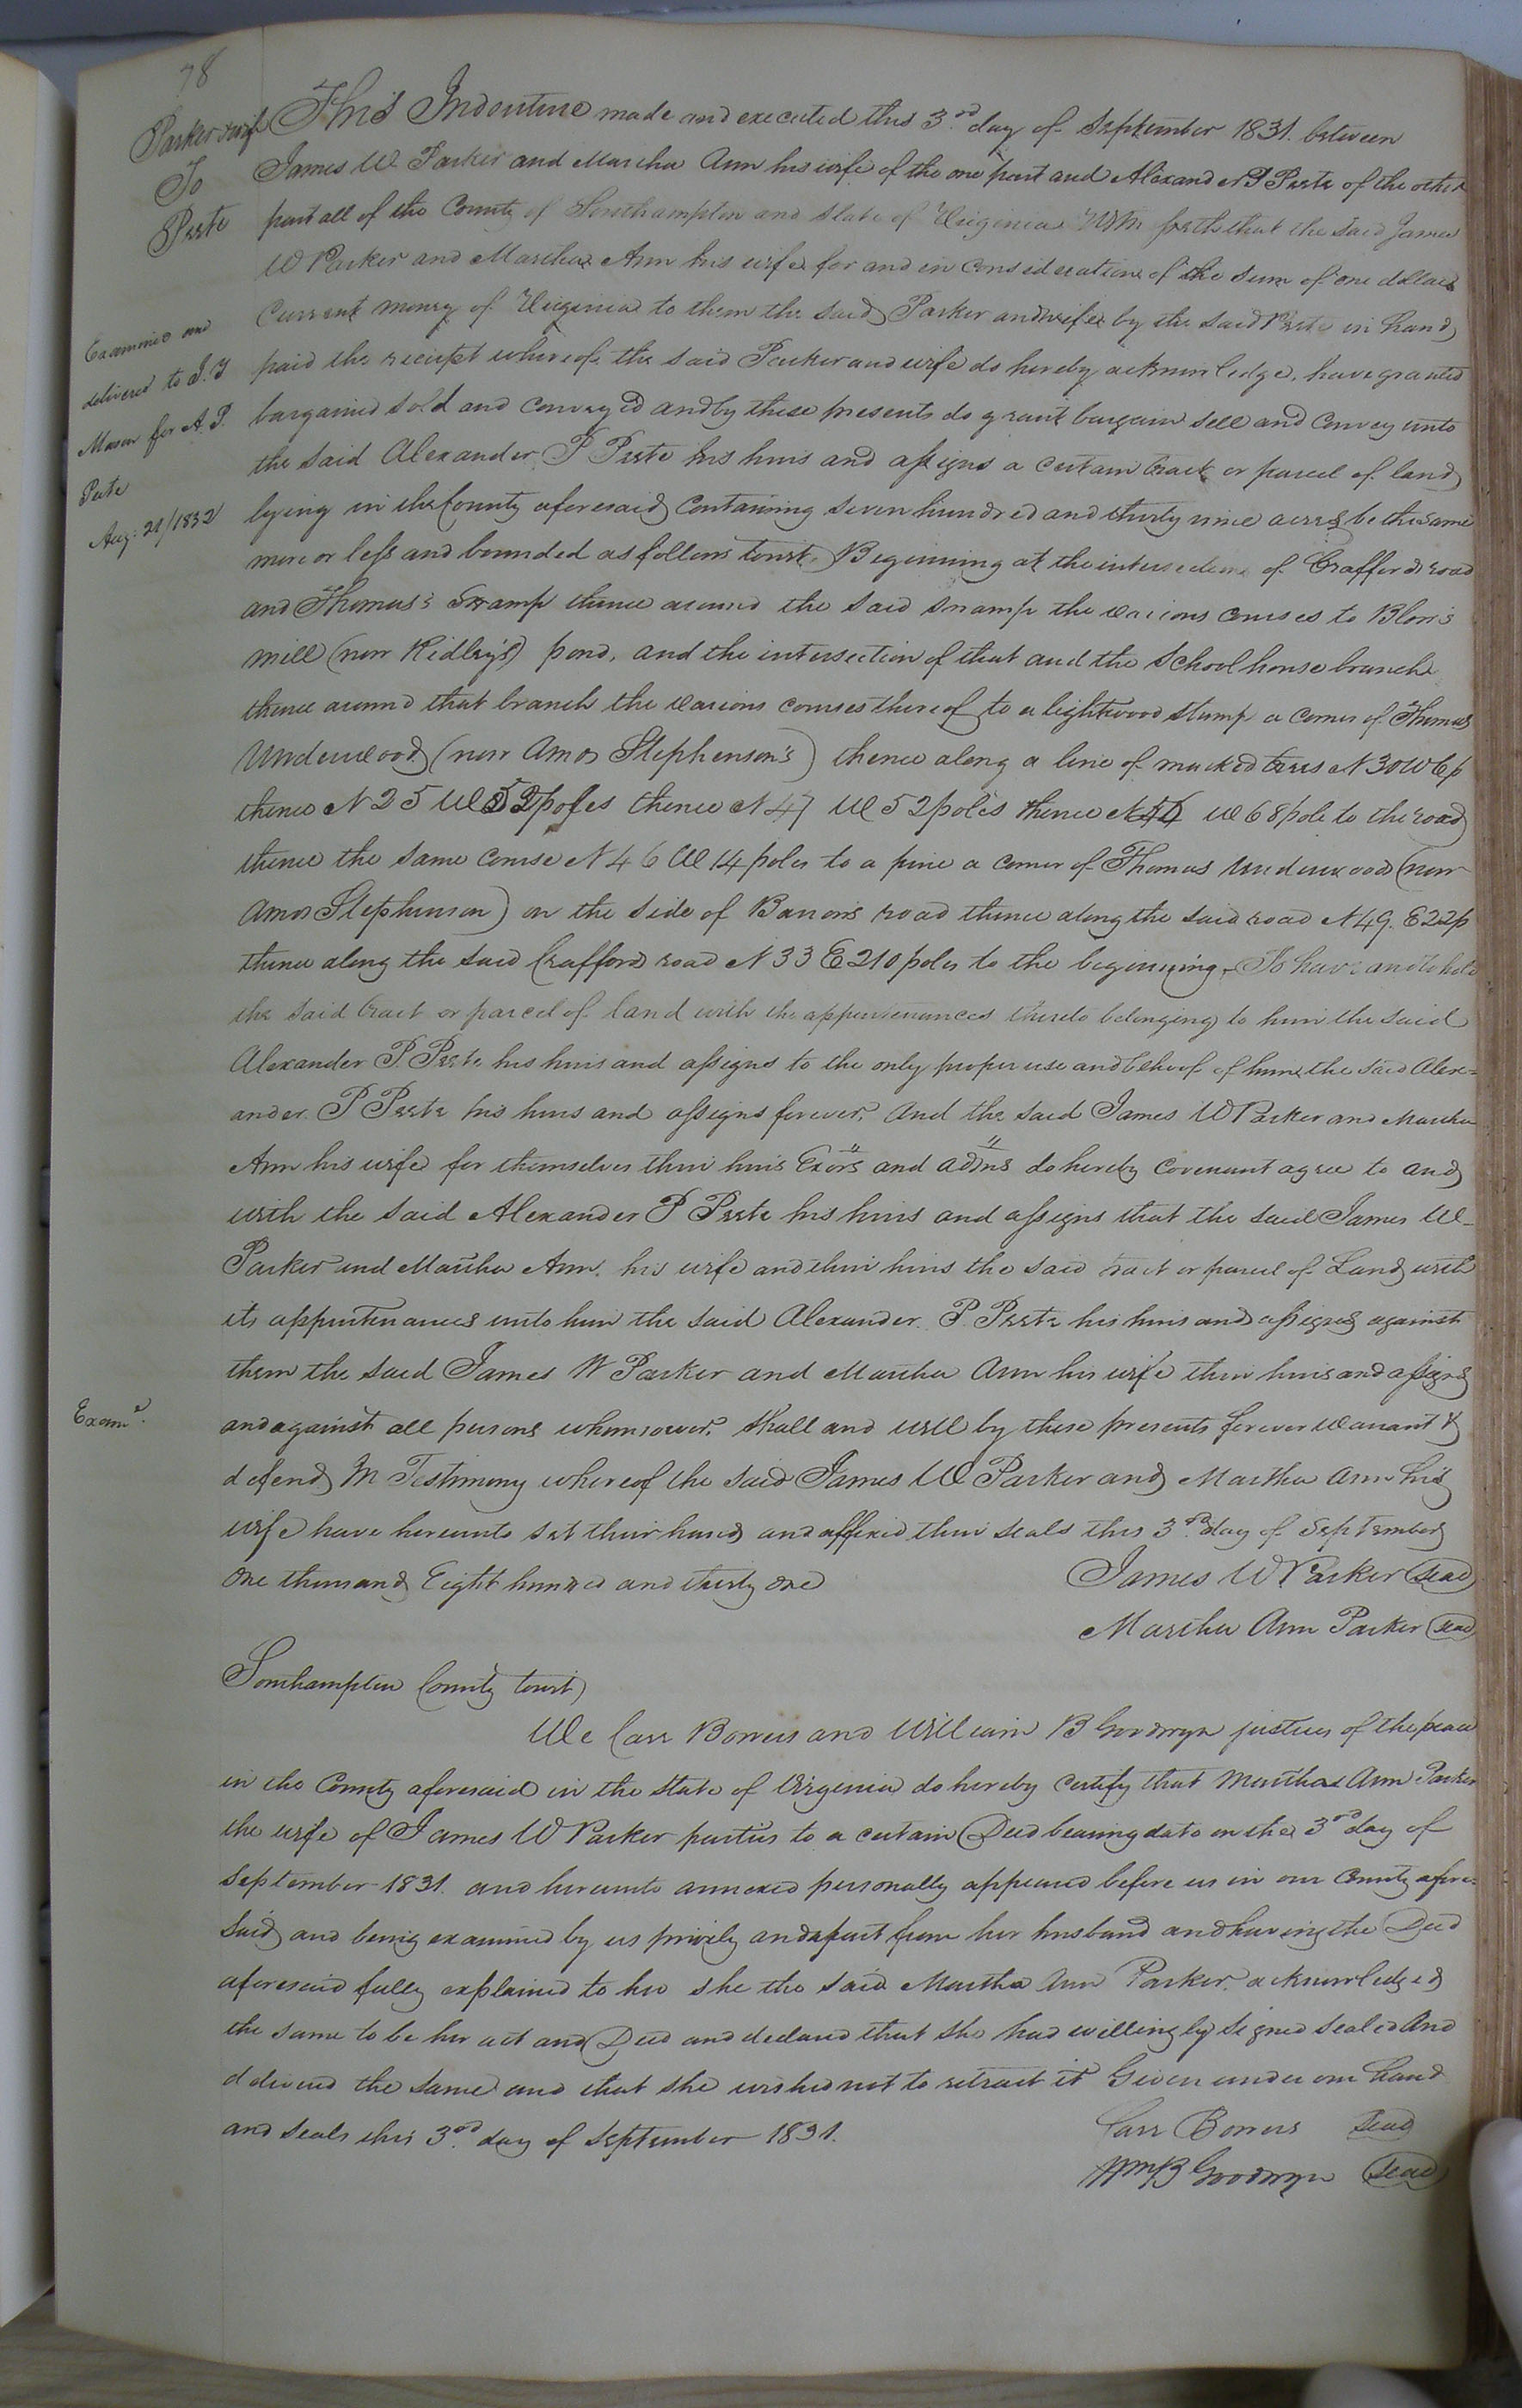 78
Parker & wife
To
Peete
Examined and
delivered to J. Y
Mason for A. P.
Peete
Aug: 21/1832
This Indenture made and executed this 3rd day of September 1831. between
James W Parker and Martha Ann his wife of the one part and Alexander P Peete of the other
part all of the County of Southampton and State of Virginia Witnesseth that the said James
W Parker and Martha Ann his wife for and in consideration of the sum of one dollar
Current money of Virginia to them the said Parker and wife by the said Peete in hand
paid the reciept whereof the said Parker and wife do hereby acknowledge, have granted
bargained sold and conveyed and by these presents do grant bargain sell and convey unto
the said Alexander P Peete his heirs and assigns a certain tract or parcel of land
lying in the County aforesaid containing seven hundred and thirty nine acres be the same
more or less and bounded as follows towit. Beginning at the intersection of Crafford road
and Thomas's Swamp thence around the said swamp the various courses to Blow's
mill (now Ridley's) pond, and the intersection of that and the School house branch
thence around that branch the various courses thereof to a lightwood stump a corner of Thomas
Underwood (now Amos Stephenson's) thence along a line of marked trees N 30 W 6 p
thence N 25 W 52 poles thence N 47 W 52 poles thence N 46 W 68 pole to the road
thence the same course N 46 W 14 poles to a pine a corner of Thomas Underwood (now
Amos Stephenson) on the side of Barrow's road thence along the said road N 49. E 22 p
thence along the said Crafford road N 33 E 210 poles to the beginning, To have and to hold
the said tract or parcel of land with the appurtenances thereto belonging to him the said
Alexander P. Peete his heirs and assigns to the only proper use and behoof of him the said Alex=
ander P Peete his heirs and assigns forever. And the said James W Parker and Martha
Ann his wife for themselves their heirs Exors and admrs do hereby covenant agree to and
with the said Alexander P Peete his heirs and assigns that the said James W
Parker and Martha Ann his wife and their heirs the said tract or parcel of Land with
its appurtenances unto him the said Alexander P. Peete his heirs and assigns against
them the said James W Parker and Martha Ann his wife their heirs and assigns
Examd.
and against all persons whomsoever, shall and will by these presents forever warrant &
defend In Testimony whereof the said James W Parker and Martha Ann his
wife have hereunto set their hands and affixed their seals this 3rd day of September
One thousand Eight hundred and thirty one
James W Parker Seal
Martha Ann Parker Seal
Southampton County towit)
We Carr Bowers and William B Goodwyn justices of the peace
in the County aforesaid in the State of Virginia do hereby certify that Martha Ann Parker
the wife of James W Parker parties to a certain Deed bearing date on the 3rd day of
September 1831. and hereunto annexed personally appeared before us in our County afore=
said and being examined by us privily and apart from her husband and having the Deed
aforesaid fully explained to her she the said Martha Ann Parker acknowledged
the same to be her act and Deed and declared that she had willingly signed sealed and
delivered the same and that she wished not to retract it Given under our hand
and seals this 3rd day of September 1831.
Carr Bowers Seal
Wm B Goodwyn Seal